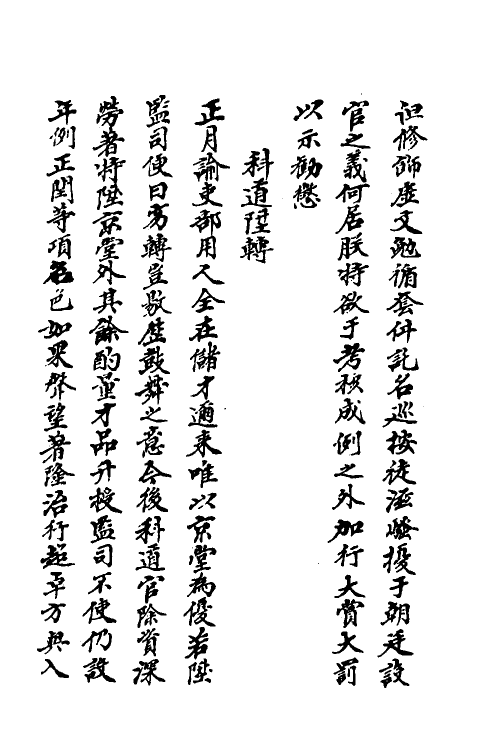 但修飾虛文勉循套件託名巡按徒滋騷擾于朝廷設
官之義何居朕特欲于考核成例之外加行大賞大罰
以示勸懲
科道陞轉
正月諭吏部用人全在儲才邇来唯以京堂為優若陞
監司便曰劣轉豈敭歴鼓舞之意今後科道官除資深
勞著特陞京堂外其餘酌量才品升授監司不使仍設
年例正閏等項名色如果聲望著隆治行超卓方與入